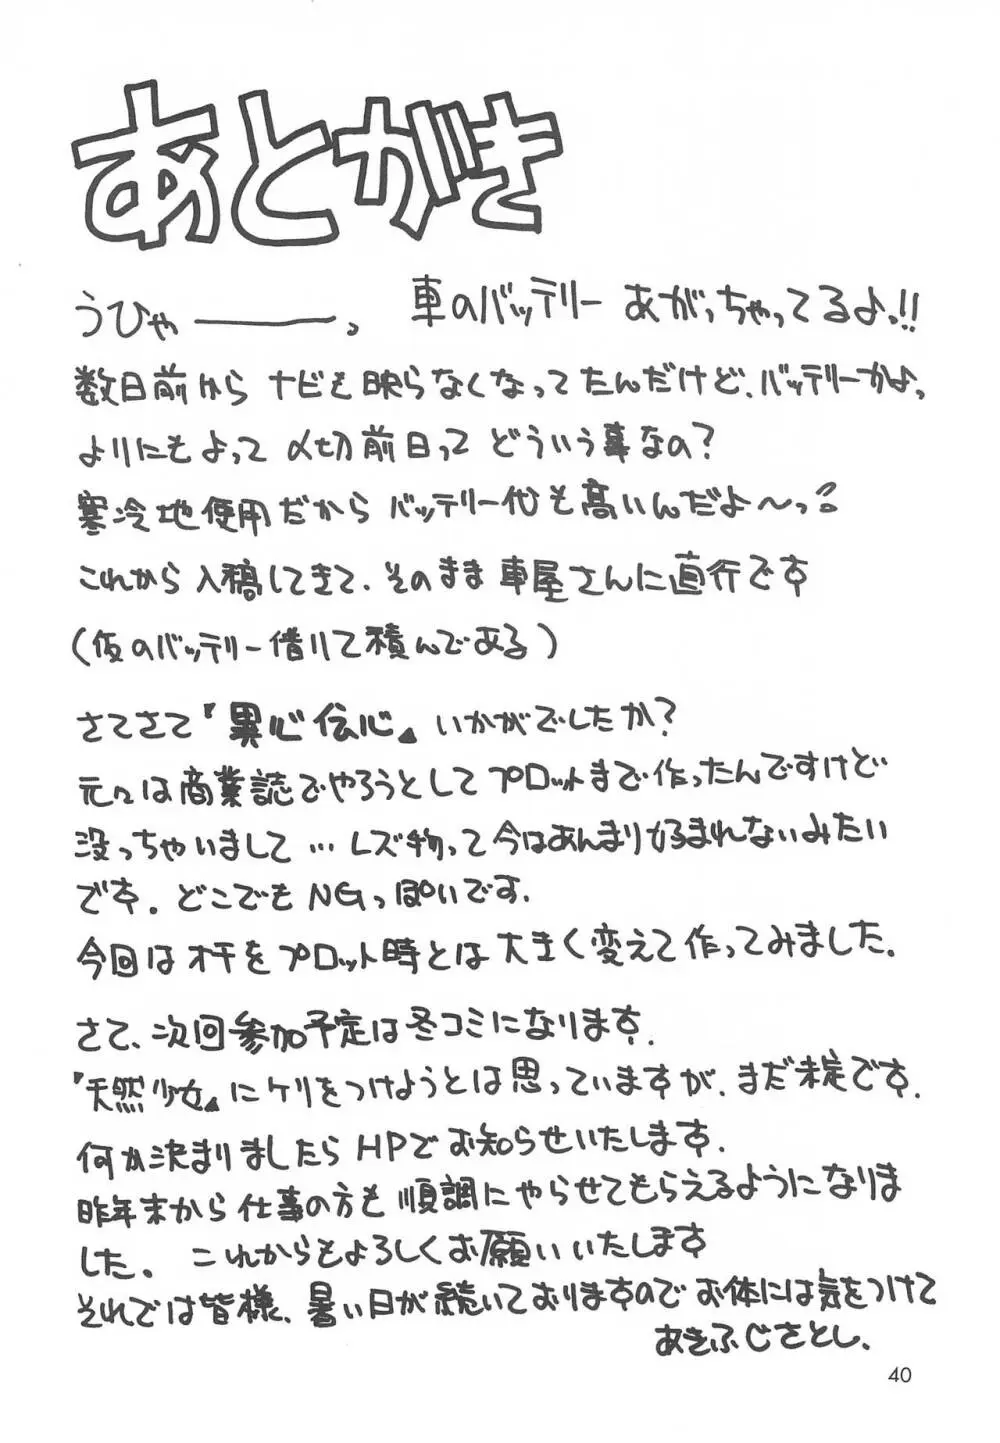 あとがき
うひゃ———っ 車のバッテリーあがっちゃってるよっ!!
数日前からナビも映らなくなってたんだけど、バッテリーかよっ
よりにもよって〆切前日ってどういう事なの?
寒冷地使用だからバッテリー代も高いんだよ〜っ
これから入稿してきて、そのまま車屋さんに直行です
(仮のバッテリー借りて積んである)
さてさて『異心伝心』いかがでしたか?
元々は商業誌でやろうとしてプロットまで作ったんですけど
没っちゃいまして…レズ物って今はあんまり好まれないみたい
です。どこでもNGっぽいです。
今回はオチをプロット時とは大きく変えて作ってみました。
さて、次回参加予定は冬コミになります。
『天然少女』にケリをつけようとは思っていますが、まだ未定です。
何か決まりましたらHPでお知らせいたします。
昨年末から仕事の方も順調にやらせてもらえるようになりま
した。これからもよろしくお願いいたします
それでは皆様、暑い日が続いておりますのでお体には気をつけて
あきふじさとし.
40